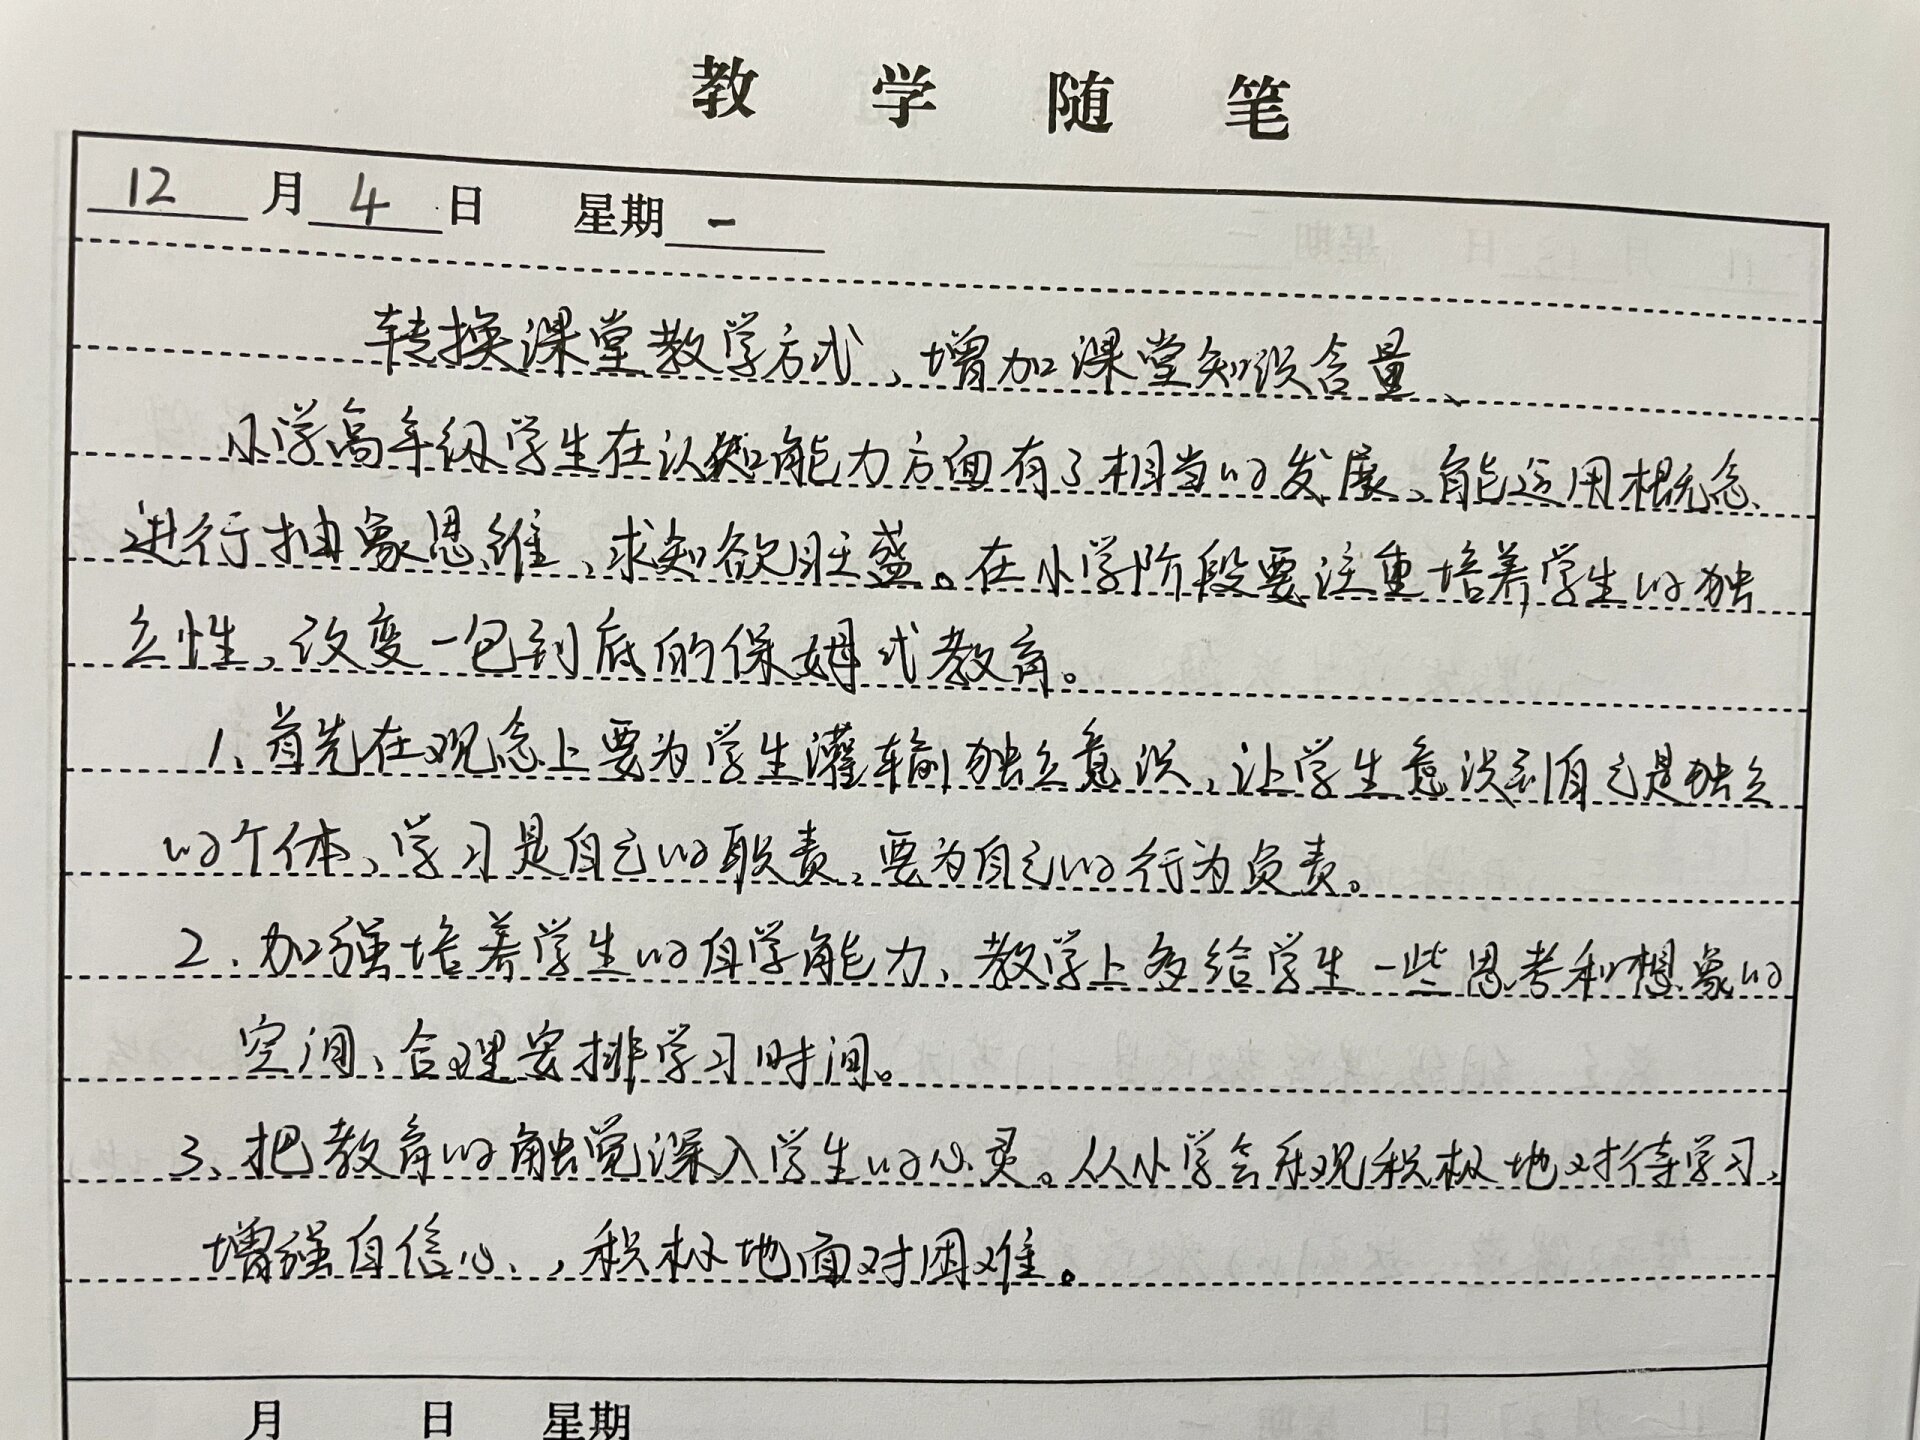 教学随笔
12月4日 星期一
转换课堂教学方式、增加课堂知识含量、
小学高年级学生在认知能力方面有了相当的发展、能运用概念、
进行抽象思维、求知欲旺盛。在小学阶段要注重培养学生的独
立性、改变一包到底的保姆式教育。
1、首先在观念上要为学生灌输独立意识、让学生意识到自己是独立
的个体、学习是自己的职责、要为自己的行为负责。
2.加强培养学生的自学能力、教学上多给学生一些思考和想象的
空间、合理安排学习时间。
3、把教育的触觉深入学生的心灵。从小学会乐观积极地对待学习、
增强自信心、,积极地面对困难。
月 日 星期